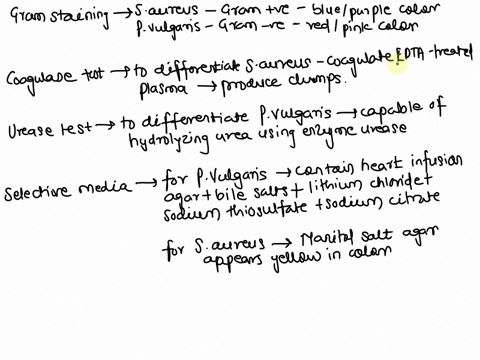 Gram staining → S.aureus - Gram +ve - blue/purple color
P.vulgaris - Gram -ve - red/pink color
Coagulase test → to differentiate S.aureus - coagulate EDTA-treated
plasma → produce clumps.
Urease test → to differentiate P.vulgaris → capable of
hydrolyzing urea using enzyme urease
Selective media → for P.vulgaris → contain heart infusion
agar + bile salts + lithium chloride +
sodium thiosulfate + sodium citrate
for S.aureus → Manitol salt agar
appears yellow in color